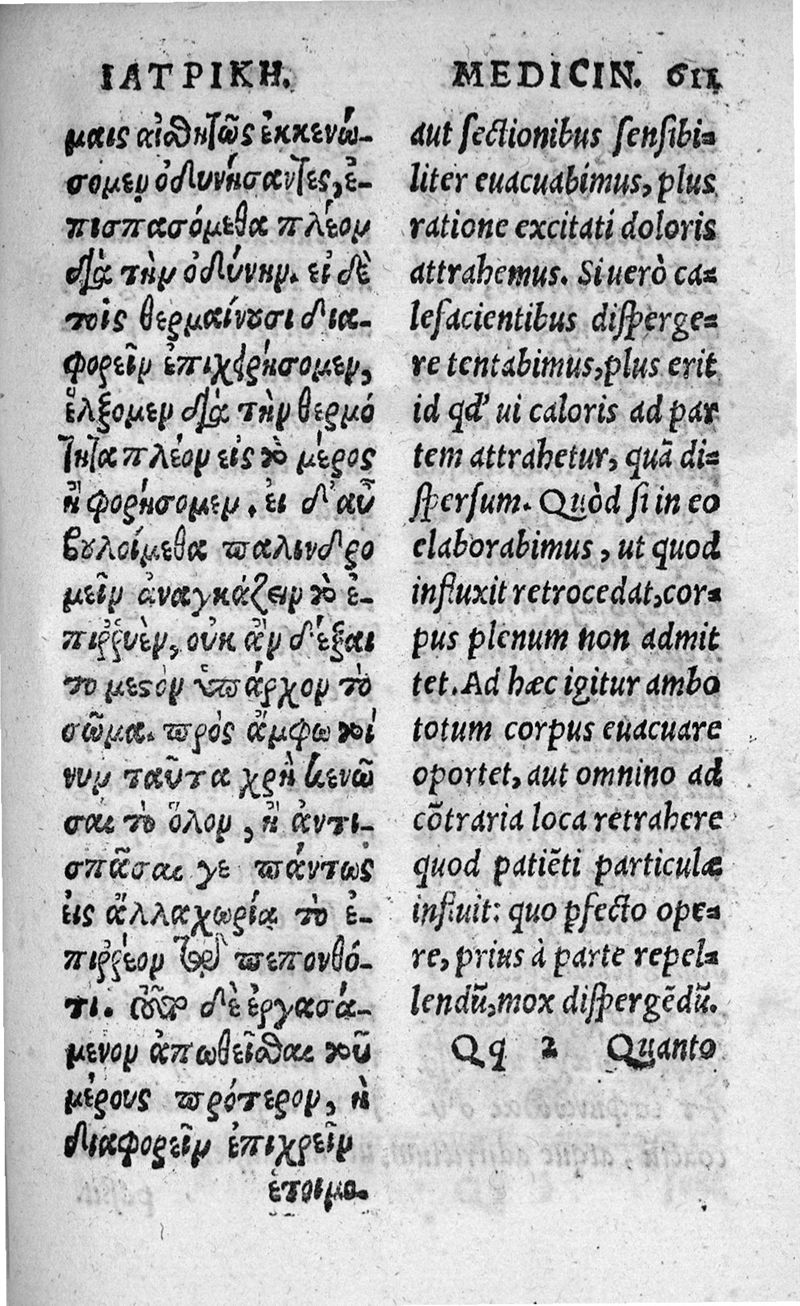 ΙΑΤΡΙΚΗ.
μαις αἰσθητῶς ἐκκενώ-
σομεν ὀδυνήσαντες, ἐ-
πισπασόμεθα πλέον
διὰ τὴν ὀδύνην. εἰ δὲ
τοῖς θερμαίνουσι δια-
φορεῖν ἐπιχειρήσομεν,
ἕλξομεν διὰ τὴν θερμό
τητα πλέον εἰς τὸ μέρος
ἢ φορήσομεν. ει δ' αὖ
βουλοίμεθα παλινδρο
μεῖν ἀναγκάζειν τὸ ἐ-
πιρρυὲν, οὐκ ἂν δέξαι
το μεστὸν ὑπάρχον τὸ
σῶμα. πρὸς ἄμφω τοί
νυν ταῦτα χρὴ κενῶ
σαι τὸ ὅλον, ἢ ἀντι-
σπᾶσαι γε πάντως
εἰς ἄλλα χωρία τὸ ἐ-
πιρρέον τῷ πεπονθό-
τι. οὕτω δὲ ἐργασά-
μενον ἀπωθεῖσθαι τοῦ
μέρους πρότερον, ἢ
διαφορεῖν ἐπιχρεῖν
ἑτοιμο.
MEDICIN. 611
aut sectionibus sensibi-
liter euacuabimus, plus
ratione excitati doloris
attrahemus. Si uerò ca-
lefacientibus disperge-
re tentabimus, plus erit
id qd' ui caloris ad par
tem attrahetur, quā di-
spersum. Quòd si in eo
elaborabimus, ut quod
influxit retrocedat, cor-
pus plenum non admit
tet. Ad hæc igitur ambo
totum corpus euacuare
oportet, aut omnino ad
cōtraria loca retrahere
quod patiēti particulæ
influit: quo ꝑfecto ope-
re, prius à parte repel-
lendū, mox dispergēdū.
Qq 2 Quanto